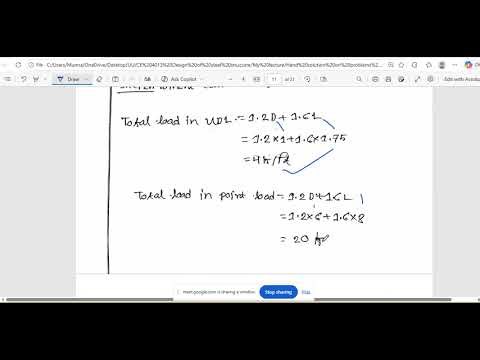 File
C:/Users/Mumna/OneDrive/Desktop/UU/CE%204013%20Design%20of%20steel%20structure/My%20lecture/Hand%20solution%20or%20problems%2
Draw
Ask Copilot
11
of 21
Edit with Acrobat
Total load in UDL = 1.2D + 1.6L
= 1.2×1+1.6×1.75
= 4k/ft
Total load in point load = 1.2D+1.6L
= 1.2×6+1.6×8
= 20 kip
meet.google.com is sharing a window.
Stop sharing
Hide